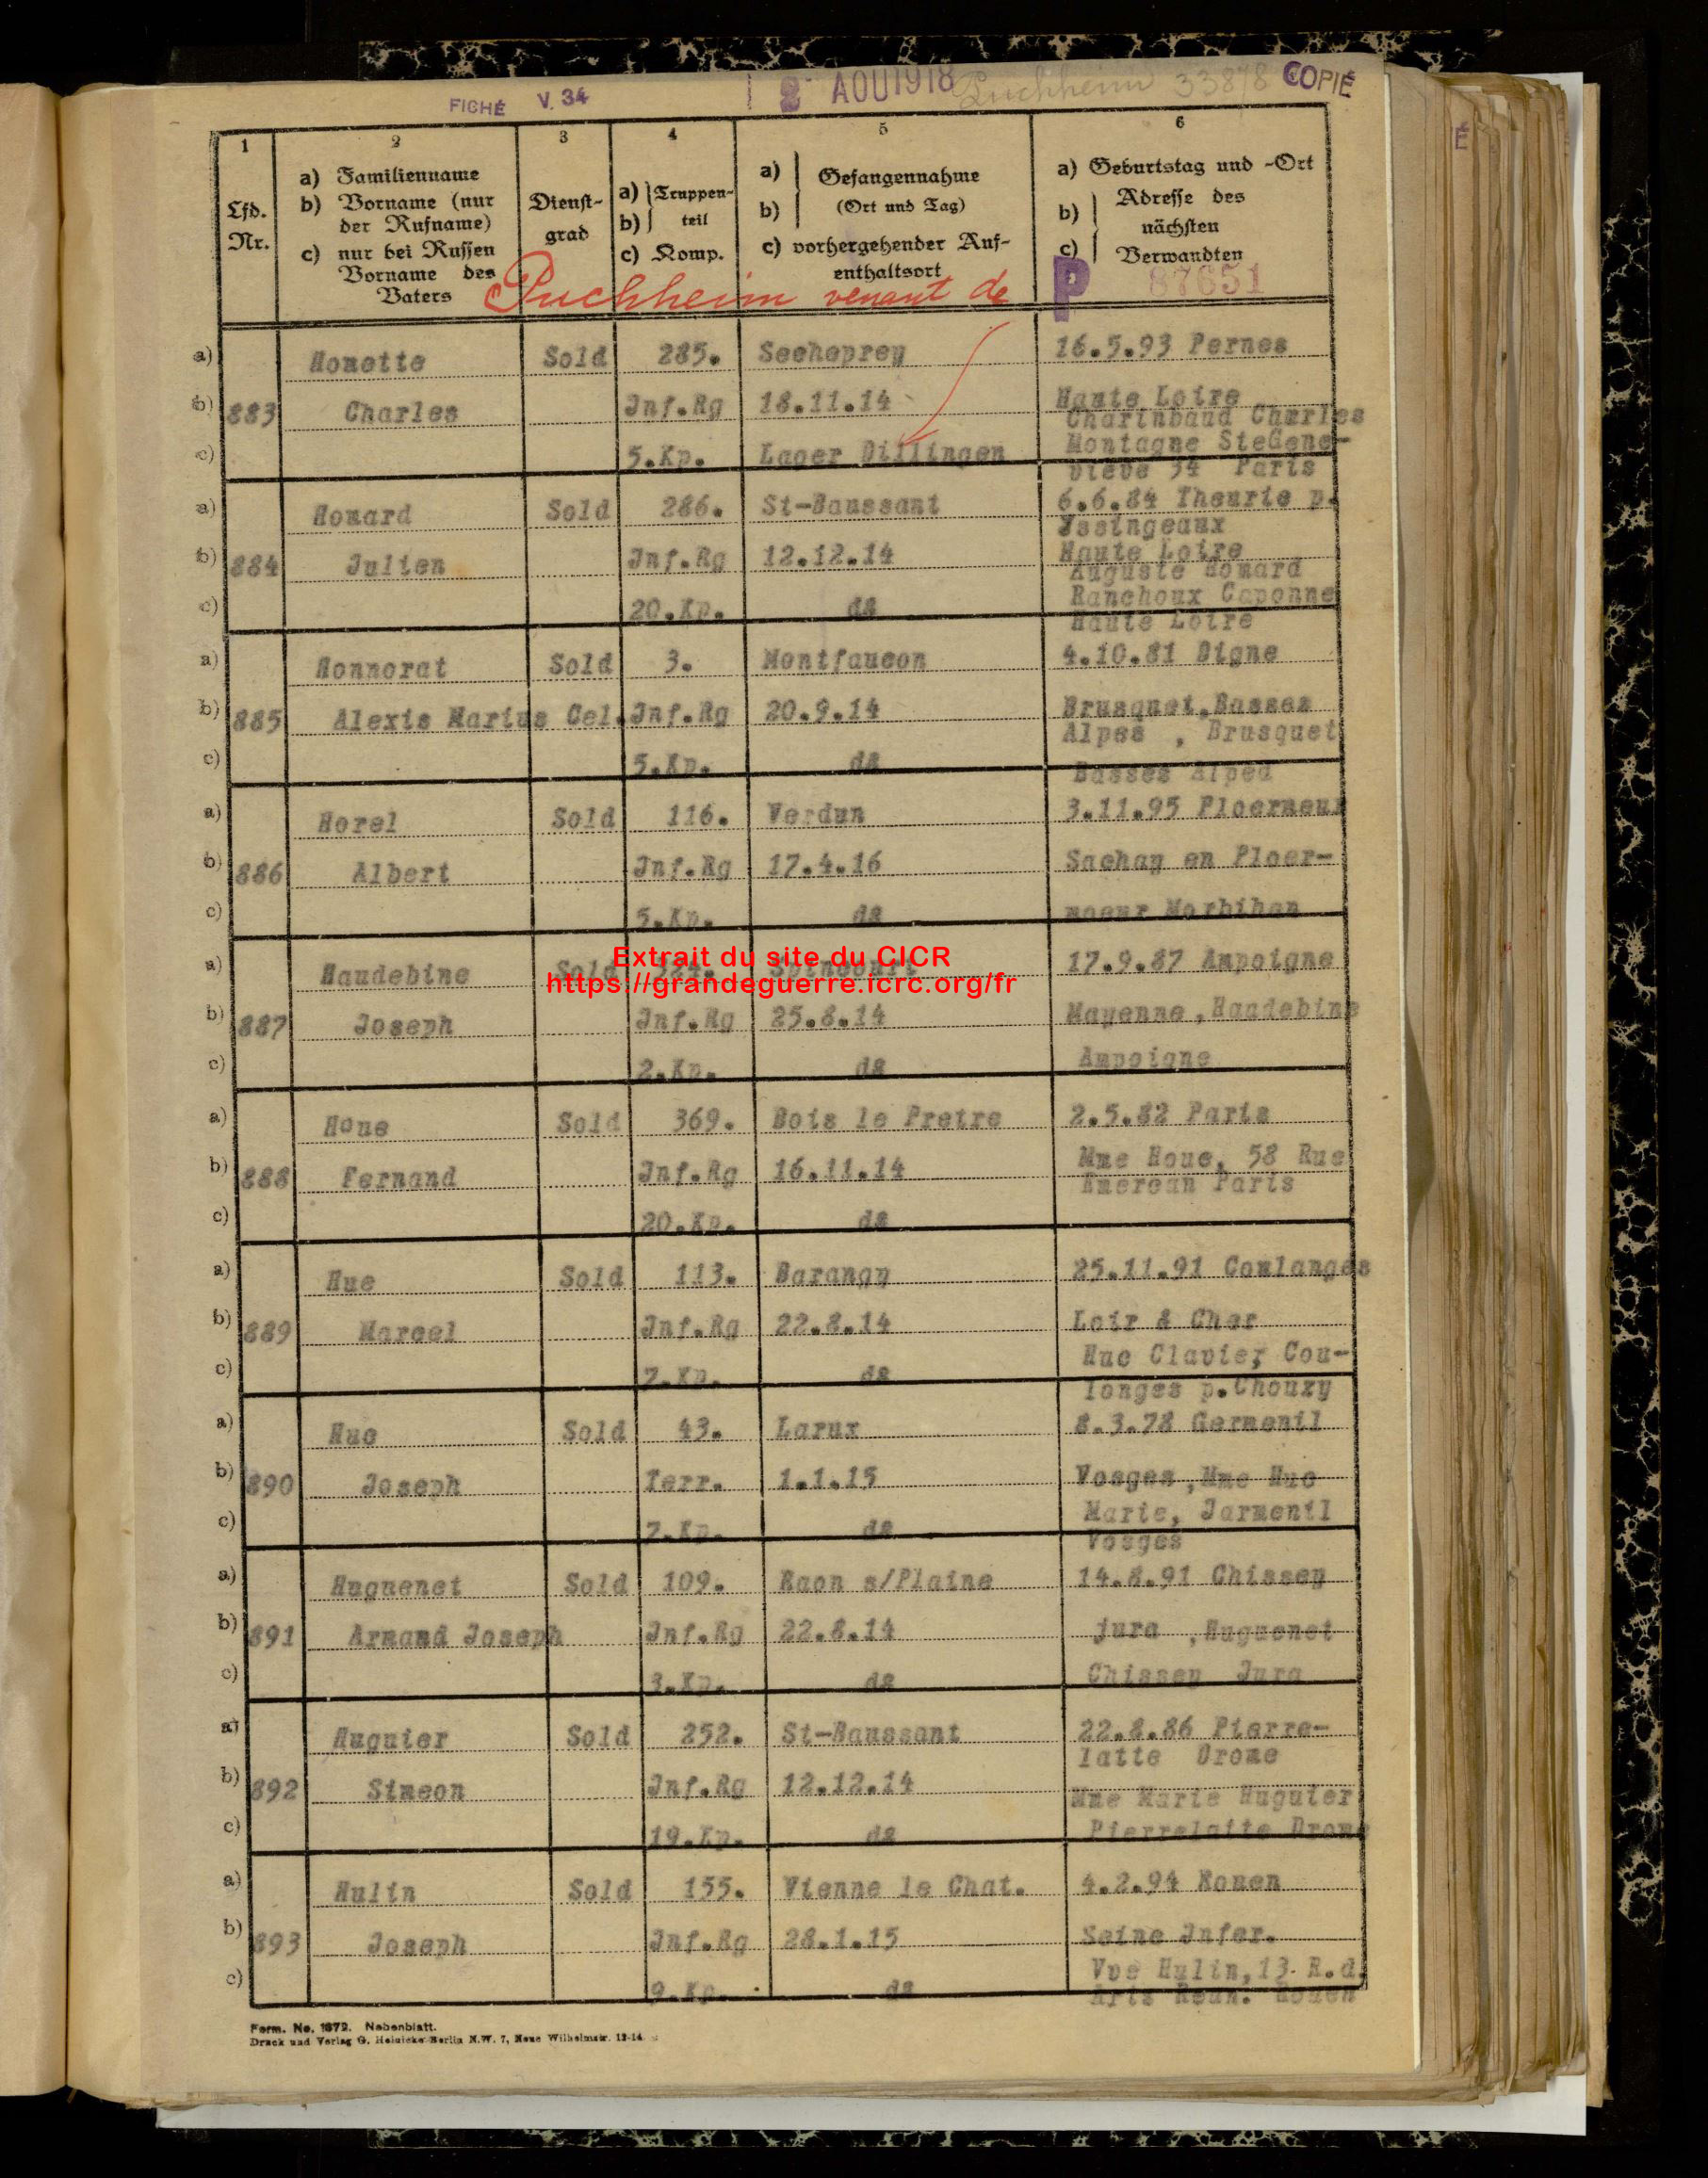 FICHÉ V. 34
2 AOU 1918
Puchheim 33878
COPIÉ
1 2 3 4 5 6
Lfd. Nr.
a) Familienname
b) Vorname (nur der Rufname)
c) nur bei Russen Vorname des Vaters
Dienst-
grad
a) } Truppen-
b) } teil
c) Komp.
a) } Gefangennahme
b) } (Ort und Tag)
c) vorhergehender Auf-
enthaltsort
a) Geburtstag und -Ort
b) } Adresse des
nächsten
c) } Verwandten
Puchheim venant de
P 87651
a) Honette Sold 285. Seeheprey 16.5.93 Pernes
b) 883 Charles Inf.Rg 18.11.14 Haute Loire
Charinbaud Charles
c) 5.Kp. Lager Dillingen Montagne SteGene-
vieve 34 Paris
a) Homard Sold 286. St-Baussant 6.6.84 Theurie p.
Issingeaux
b) 884 Julien Inf.Rg 12.12.14 Haute Loire
Auguste Homard
c) 20.Kp. do Ranchoux Caponne
Haute Loire
a) Honnorat Sold 3. Montfaucon 4.10.81 Digne
b) 885 Alexis Marius Cel. Inf.Rg 20.9.14 Brusquet,Basses
Alpes , Brusquet
c) 5.Kp. do Basses Alped
a) Horel Sold 116. Verdun 3.11.95 Ploermeur
b) 886 Albert Inf.Rg 17.4.16 Sachay en Ploer-
c) 5.Kp. do moeur Morbihan
Extrait du site du CICR
https://grandeguerre.icrc.org/fr
a) Haudebine Sold 324. Spincourt 17.9.87 Ampoigne
b) 887 Joseph Inf.Rg 25.8.14 Mayenne,Haudebine
c) 2.Kp. do Ampoigne
a) Houe Sold 369. Bois le Pretre 2.5.82 Paris
b) 888 Fernand Inf.Rg 16.11.14 Mme Houe, 58 Rue
Paris
c) 20.Kp. do
a) Hue Sold 113. Barangy 25.11.91 Coulanges
b) 889 Marcel Inf.Rg 22.8.14 Loir & Cher
c) 7.Kp. do Huc Clavier, Cou-
longes p.Chouzy
a) Huc Sold 43. Larux 8.3.78 Germenil
b) 890 Joseph Terr. 1.1.15 Vosges ,Mme Huc
c) 7.Kp. do Marie, Jarmenil
Vosges
a) Huguenet Sold 109. Raon s/Plaine 14.8.91 Chissey
b) 891 Armand Joseph Inf.Rg 22.8.14 jura ,Huguenet
c) 3.Kp. do Chissey Jura
a) Huguier Sold 252. St-Baussant 22.8.86 Pierre-
latte Drome
b) 892 Simeon Inf.Rg 12.12.14 Mme Marie Huguier
c) 19.Kp. do Pierrelatte Drome
a) Hulin Sold 155. Vienne le Chat. 4.2.94 Rouen
b) 893 Joseph Inf.Rg 28.1.15 Seine Infer.
c) 9.Kp. do Vve Hulin,13 R.d.
Arts Reun. Rouen
Form. No. 1672. Nebenblatt.
Druck und Verlag G. Heinicke Berlin N.W. 7, Neue Wilhelmstr. 13-14